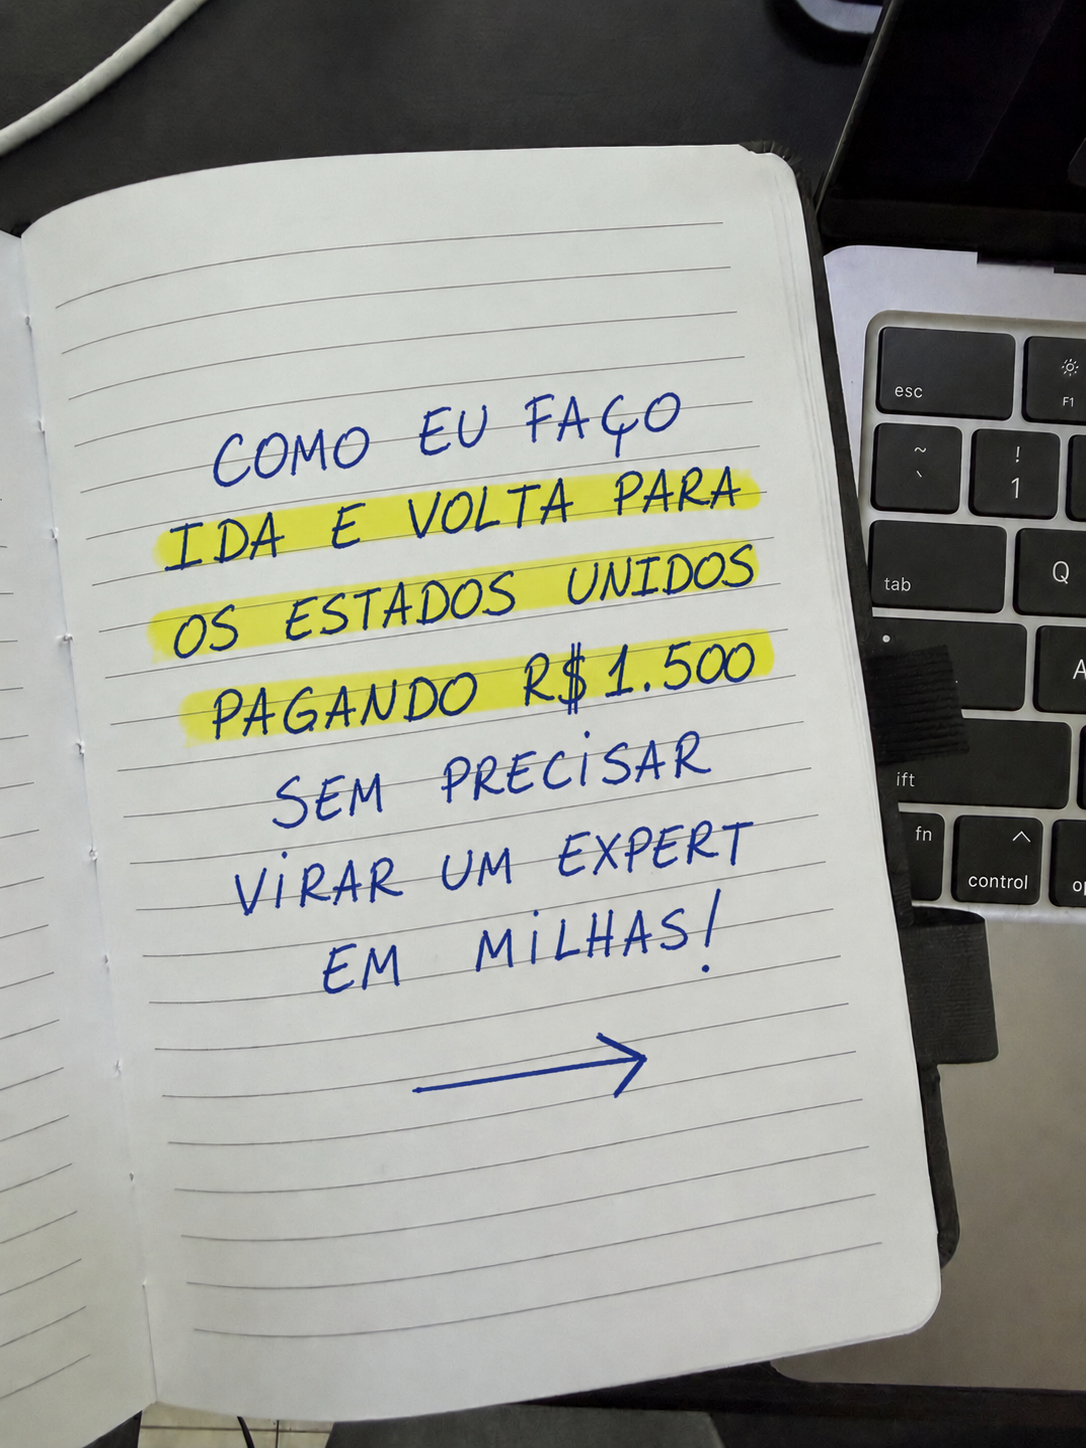 COMO EU FAÇO
IDA E VOLTA PARA
OS ESTADOS UNIDOS
PAGANDO R$ 1.500
SEM PRECISAR
VIRAR UM EXPERT
EM MILHAS!
esc
F1
~
`
!
1
tab
Q
A
ift
fn
control
op